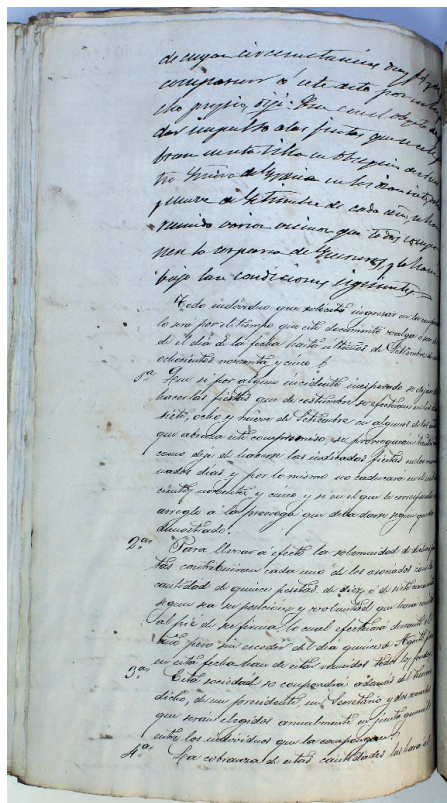 de cuyas circunstancias doy fe, y
comparecen á este acto por su de
cho propio, dije: Que con el objeto de
dar impulso a las fiestas que se cele
bran en esta Villa en obsequio de nues
tra Señora de Gracia en los dias siete, ocho
y nueve de Setiembre de cada año, se han
reunido varios vecinos que todos compo
nen la comparsa de Guerreros, y lo hacen
bajo las condiciones siguientes
Todo individuo que solicite ingresar en la compar
lo sera por el tiempo que este documento valga o sea des
d el dia de la fecha hasta ultimos de Setiembre de mil
ochocientos noventa y cinco
1ª Que si por algun incidente inesperado se dejan de
hacer las fiestas que de costumbre se efectuan en los dias
siete, ocho y nueve de Setiembre en algunos de los años
que abraza este compromiso, se prorrogarán tantos
como deje de hacerse las indicadas fiestas en los mar
cados dias y por lo mismo no caducara en el ocho
cientos noventa y cinco y si en el que le corresponda con
arreglo a la prorroga que deba darse segun queda
demostrado.
2ª Para llevar a efecto la solemnidad de dichas fies
tas contribuiran cada uno de los asociados con la
cantidad de quince pesetas, de diez, o de siete cincuenta
segun sea su posicion y voluntad que hara constar
al pie de su firma lo cual efectuara durante el
año, pero sin exceder del dia quince de Agosto pues
en esta fecha han de estar reunidos todos los fondos
3ª Esta sociedad se compondrá ademas del
dicho, de un presidente, un Secretario y dos vocales
que serán elegidos anualmente en junta general
entre los individuos que la componen
4ª La cobranza de estas cantidades las hará el